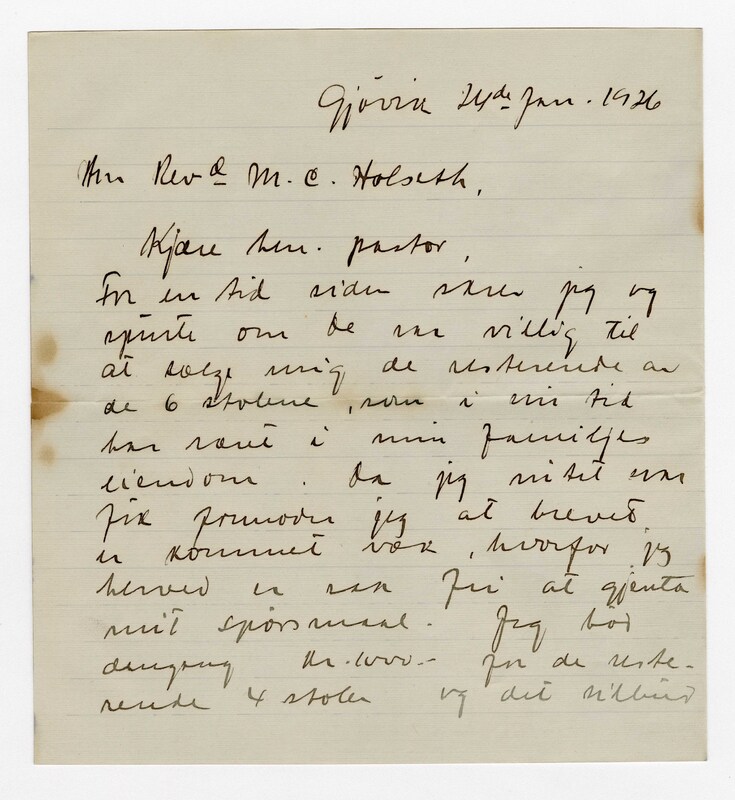 Gjövik 24de Jan. 1926
Herr Revd M. C. Holseth,
Kjære herr. pastor,
For en tid siden skrev jeg og
spurte om De var villig til
at sælge mig de resterende av
de 6 stolene, som i sin tid
har været i min familjes
eiendom. Da jeg intet svar
fik formoder jeg at brevet
er kommet væk, hvorfor jeg
herved er saa fri at gjenta
mit spörsmaal. Jeg böd
dengang Kr. 1000.- for de reste-
rende 4 stoler og det tilbud